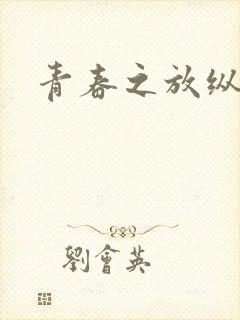 青春之放纵
劉會英